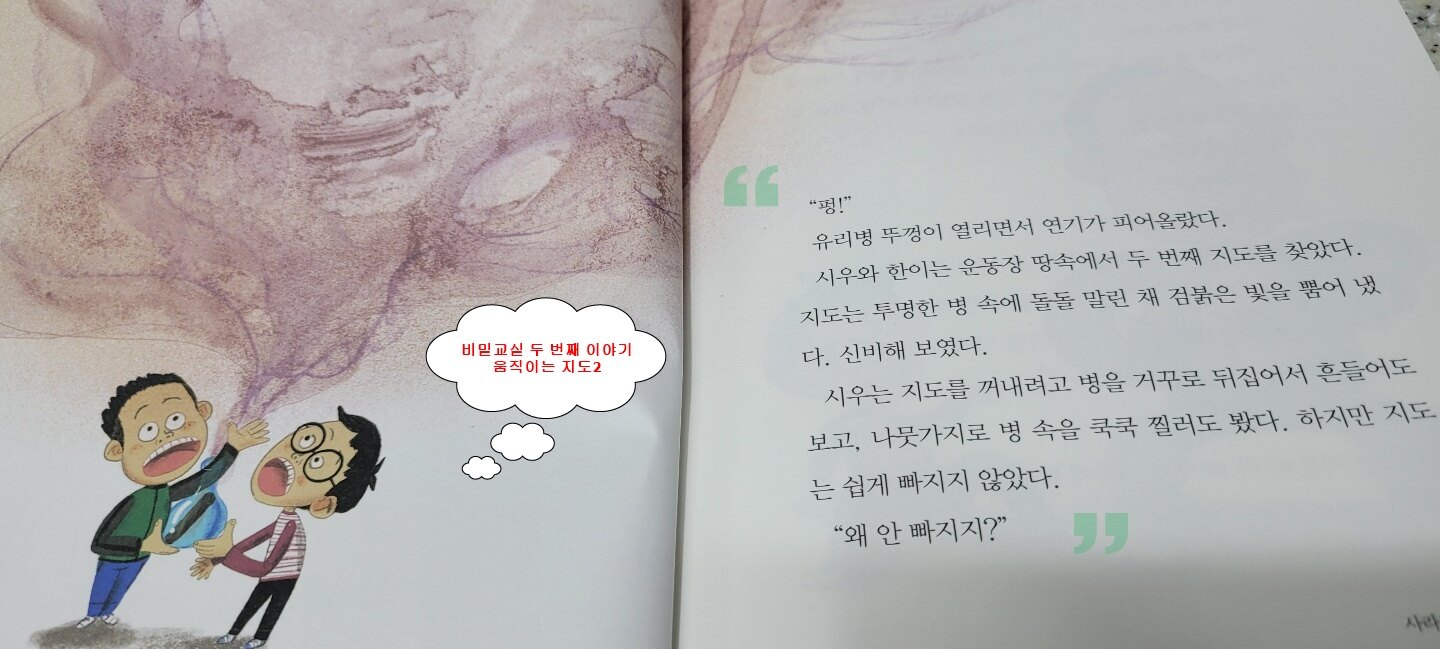 비밀교실 두 번째 이야기
움직이는 지도2
“펑!”
유리병 뚜껑이 열리면서 연기가 피어올랐다.
시우와 한이는 운동장 땅속에서 두 번째 지도를 찾았다.
지도는 투명한 병 속에 돌돌 말린 채 검붉은 빛을 뿜어 냈
다. 신비해 보였다.
시우는 지도를 꺼내려고 병을 거꾸로 뒤집어서 흔들어도
보고, 나뭇가지로 병 속을 쿡쿡 찔러도 봤다. 하지만 지도
는 쉽게 빠지지 않았다.
“왜 안 빠지지?”